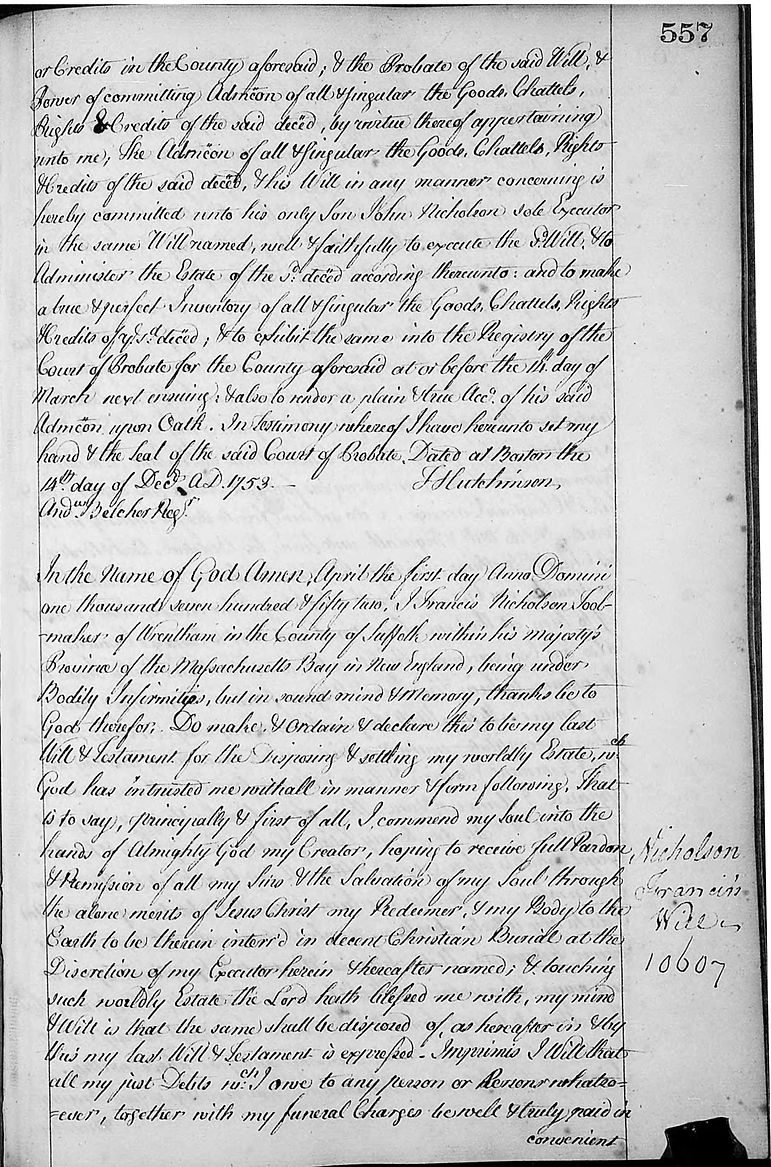 557
or Credits in the County aforesaid; & the Probate of the said Will, &
Power of committing Admc͠on of all & singular the Goods, Chattels,
Rights & Credits of the said dec͠ed, by virtue thereof appertaining
unto me; The Admic͠on of all & singular the Goods, Chattels, Rights
& Credits of the said dec͠ed, & his Will in any manner concerning is
hereby committed unto his only Son John Nicholson sole Executor
in the same Will named, well & faithfully to execute the sd. Will, & to
Administer the Estate of the sd. dec͠ed according thereunto: and to make
a true & perfect Inventory of all & singular the Goods, Chattels, Rights
& Credits of ye sd. dec͠ed; & to exhibit the same into the Registry of the
Court of Probate for the County aforesaid at or before the 14. day of
March next ensuing: & also to render a plain & true Acco. of his said
Admc͠on upon Oath. In Testimony whereof I have hereunto set my
hand & the Seal of the said Court of Probate. Dated at Boston the
14th. day of Decr. A.D. 1753. —
Hutchinson,
Andw Belcher Regr.
In the Name of God Amen, April the first day Anno Domini
one thousand seven hundred & fifty two; I Francis Nicholson Tool-
-maker of Wrentham in the County of Suffolk within his majesty's
Province of the Massachusetts Bay in New England, being under
Bodily Infirmities, but in sound mind & Memory, thanks be to
God therefor. Do make & Ordain & declare this to be my last
Will & Testament for the Disposing & settling my worldly Estate, wch.
God has intrusted me withall in manner & form following. That
is to say, principally & first of all, I commend my Soul into the
hands of Almighty God my Creator, hoping to receive full Pardon
& Remission of all my Sins & the Salvation of my Soul through
the alone merits of Jesus Christ my Redeemer, & my Body to the
Earth to be therein interr'd in decent Christian Burial at the
Discretion of my Executor herein & hereafter named; & touching
such worldly Estate the Lord hath blessed me with, my mind
& Will is that the same shall be disposed of, as hereafter in & by
this my last Will & Testament is expressed - Imprimis I Will that
all my just Debts wch. I owe to any person or Persons whatso=
=ever, together with my funeral Charges be well & truly paid in
convenient
Nicholson
Francis's
Will
10607